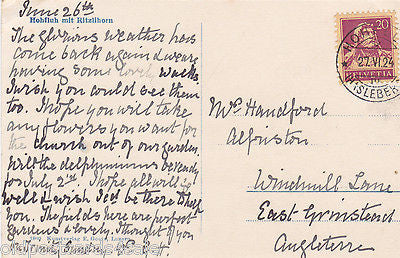 June 26th
Hohfluh mit Ritzlihorn
The glorious weather has
come back again & we are
having some lovely walks
I wish you could see them
too. I hope you will take
any flowers you want for
the church out of our garden
Will the delphiniums be ready
for July 2nd. I hope all will go
well & wish I could be there
The fields here are perfect
gardens & lovely. Thought of you
20
HELVETIA
27.VI.24
Mrs Handford
Alfriston
Windmill Lane
East Grinstead
Angleterre